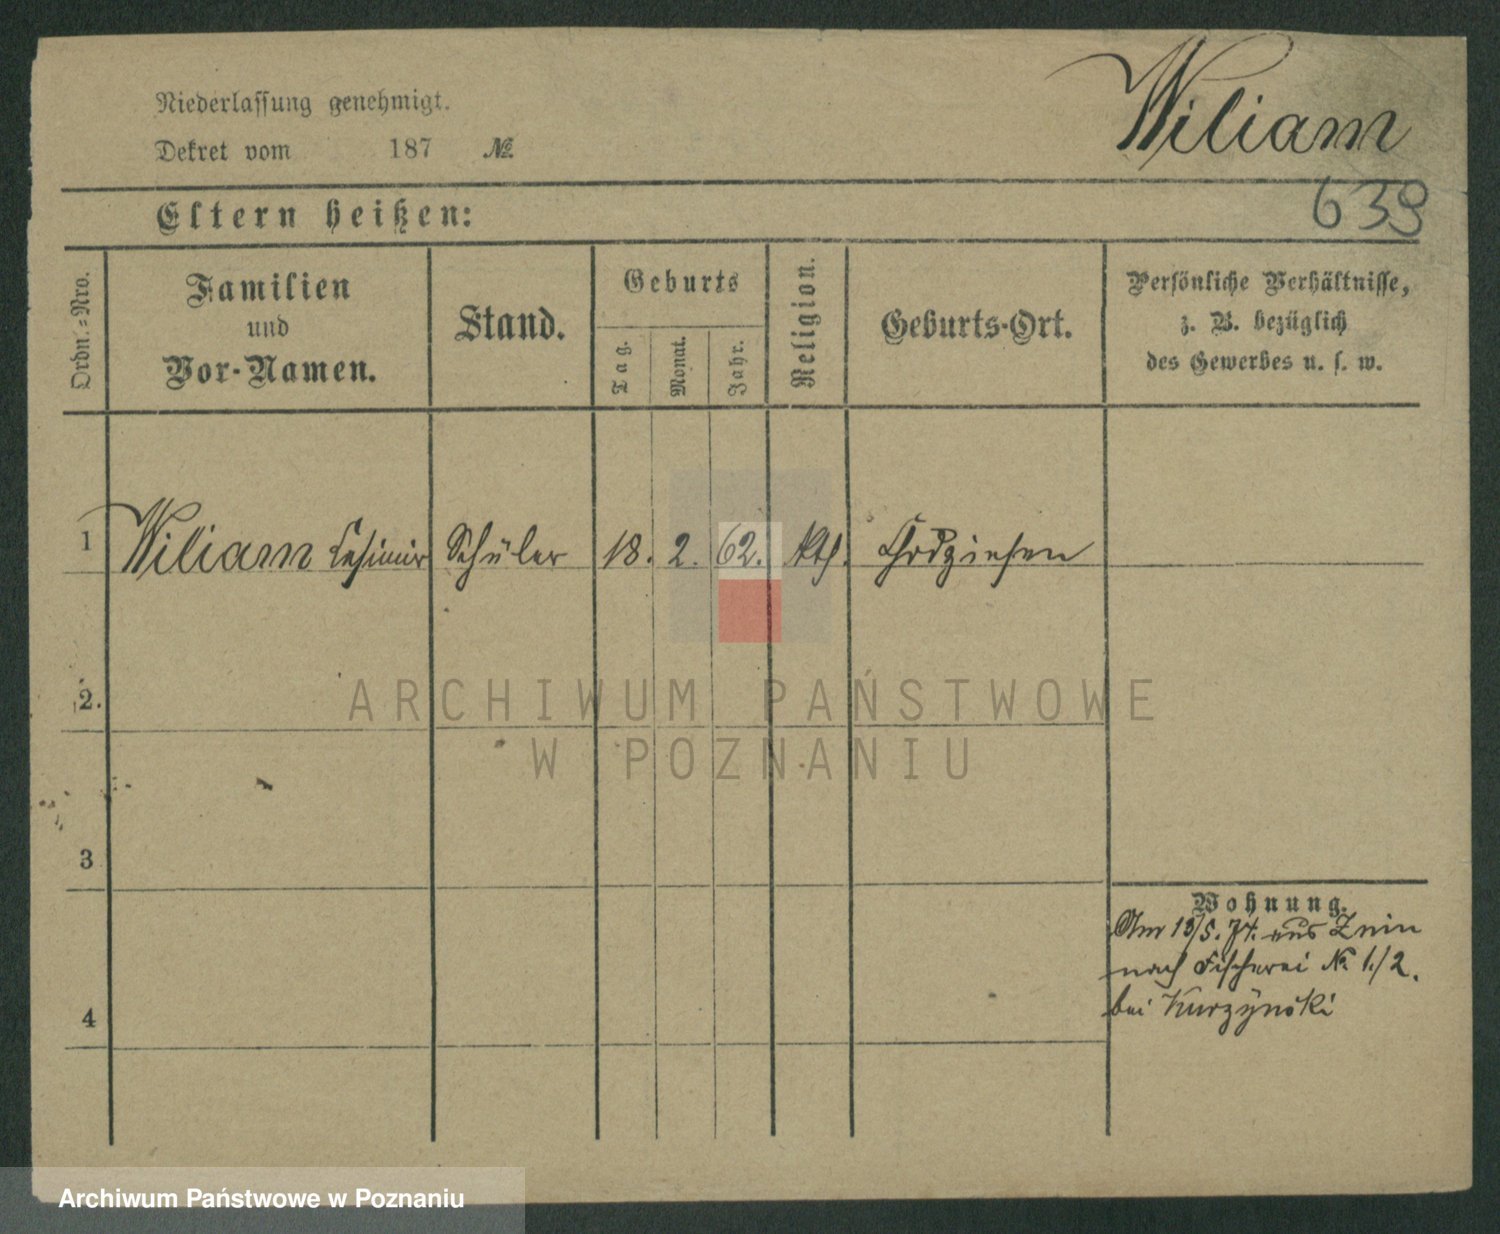 Wiliam
Niederlassung genehmigt.
Dekret vom 187 №
639
Eltern heißen:
Ordn.=Nro.
Familien
und
Vor-Namen.
Stand.
Geburts
Tag.
Monat.
Jahr.
Religion.
Geburts-Ort.
Persönliche Verhältnisse,
z. B. bezüglich
des Gewerbes u. s. w.
1 Wiliam Casimir Schüler 18. 2. 62. kth. Chodziesen
2.
3
4
Wohnung.
Am 13/5. 74. aus Znin
nach Fischerei № 1./2.
bei Kurzynski
ARCHIWUM PAŃSTWOWE
W POZNANIU
Archiwum Państwowe w Poznaniu